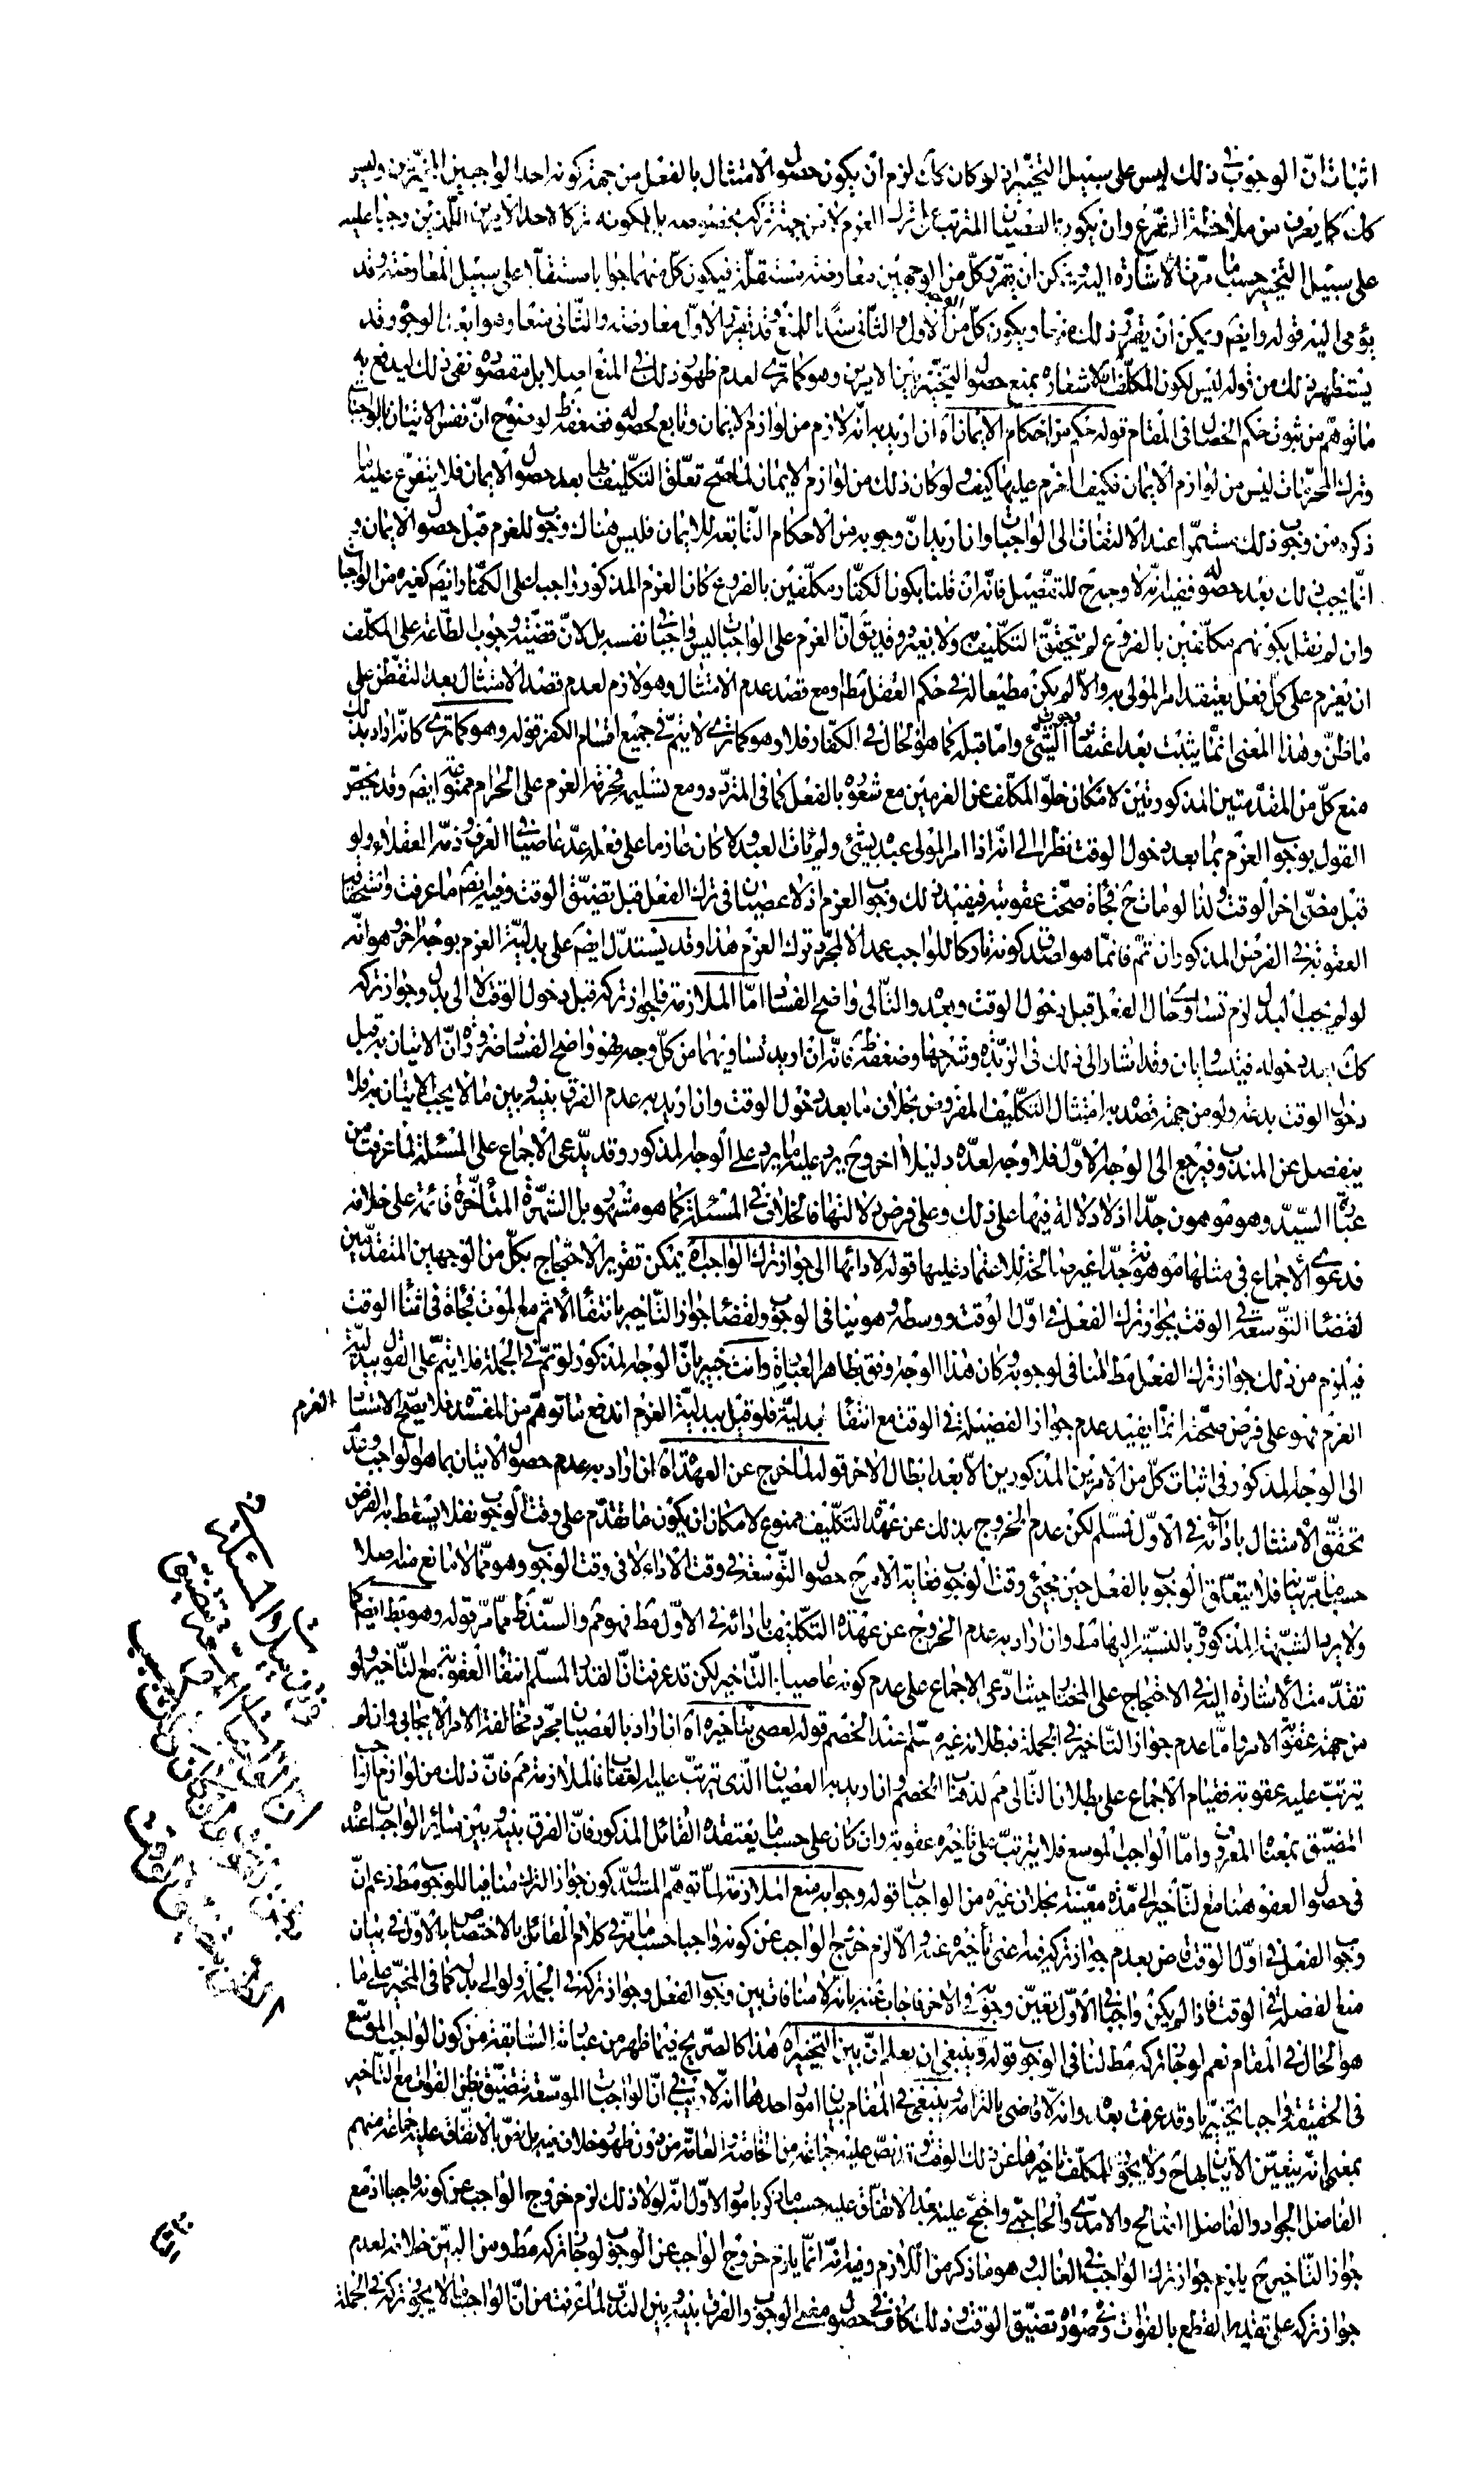 اثبات انّ الوجوب فى ذلك ليس على سبيل التخيير اذ لو كان كك لزم ان يكون حصول الامتثال بالفعل من جهة كونه احد الواجبين المخيّرين وليس
كك كما يعرف من ملاحظة التفرع وان يكون العصيان المترتب على ترك العزم لا من جهة تركه بخصوصه بل لكونه تركا لاحد الامرين اللذين وجبا عليه
على سبيل التخيير حسبما مرّت الاشارة اليه ويمكن ان يقرّر كلّ من الوجهين معارضة مستقلّة فيكون كلّ منهما جوابا مستقلا على سبيل المعارضة وقد
يؤمى اليه قوله وايضم ويمكن ان يقرّر ذلك منعا ويكون كلّ من الاول والثانى سندا للمنع وقد يقرّر الاوّل معارضة والثانى منعا وهو ابعد الوجوه وقد
يستظهر ذلك من قوله ليس لكون المكلّف لاشعاره بمنع حصول التخيير بين الامرين وهو كما ترى لعدم ظهور ذلك فى المنع اصلا بل مقصوده نفى ذلك ليدفع به
ما توهّم من ثبوت حكم الخصال فى المقام قوله حكم من احكام الايمان اه ان اريد به انّه لازم من لوازم الايمان وتابع لحصوله فضعفه ظ لوضوح انّ نفس الاتيان بالواجبات
وترك المحرّمات ليس من لوازم الايمان فكيف العزم عليها كيف ولو كان ذلك من لوازم الايمان لما صحّ تعلّق التكليف بها بعد حصول الايمان فلا يتفرّع عليه ما
ذكره من وجوب ذلك مستمرّا عند الالتفات الى الواجبات وان اريد انّ وجوبه من الاحكام التابعه للايمان فليس هناك وجوب للعزم قبل حصول الايمان و
انّما يجب ذلك بعد حصوله ففيه انّه لا وجه ح للتفصيل فانّه ان قلنا بكون الكفّار مكلّفين بالفروع كان العزم المذكور واجبا على الكفّار ايضم كغيره من الواجبات
وان لم نقل بكونهم مكلّفين بالفروع لم يتحقّق التكليف به ولا بغيره وقد يق انّ العزم على الواجبات ليس واجبا فى نفسه بل لانّ قضيّة وجوب الطاعة على المكلّف
ان يعزم على كلّ فعل يعتقد امر المولى به والّا لم يكن مطيعا له فى حكم العقل مط او مع قصد عدم الامتثال وهو لازم لعدم قصد الامتثال بعد التفطّن على
ما ظنّ وهذا المعنى انّما يثبت بعد اعتقاد وجوب الشئ وامّا قبله كما هو الحال فى الكفّار فلا وهو كما ترى لا يتمّ فى جميع اقسام الكفر قوله وهو كما ترى كانّه اراد بذلك
منع كلّ من المقدّمتين المذكورتين لامكان خلوّ المكلّف عن العزمين مع شعوره بالفعل كما فى المتردّد ومع تسليمه فحرمة العزم على الحرام ممنوعة ايضم وقد يخصّ
القول بوجوب العزم بما بعد دخول الوقت نظرا الى انّه اذا امر المولى عبده بشئ ولم يات العبد به ولا كان عازما على فعله عدّ عاصيا فى العرف وذمّه العقلاء ولو
قبل مضىّ اخر الوقت ولذا لو مات ح فجأة صحّت عقوبته فيفيد ذلك وجوب العزم اذ لا عصيان فى ترك الفعل قبل تضيّق الوقت وفيه ايضم ما عرفت واستحقاقه
العقوبة فى الفرض المذكور ان تمّ فانّما هو لصدق كونه تاركا للواجب عمدا لا لمجرّد ترك العزم هذا وقد يستدلّ ايضم على بدليّة العزم بوجه اخر وهو انّه
لو لم يجب البدل لزم تساوى حال الفعل قبل دخول الوقت وبعده والتالى واضح الفساد امّا الملازمة فلجواز تركه قبل دخول الوقت لا الى بدل وجواز تركه
كك بعد دخوله فيتساويان وقد اشار الى ذلك فى الزبدة وشرحها وضعفه ظ فانّه ان اريد تساويهما من كلّ وجه فهو واضح الفساد ضرورة انّ الاتيان به قبل
دخول الوقت بدعة ولو من جهة قصده به امتثال التكليف المفروض بخلاف ما بعد دخول الوقت وان اريد به عدم الفرق بينه وبين ما لا يجب الاتيان به فلا
ينفصل عن المندوب فيرجع الى الوجه الاوّل فلا وجه لعدّه دليلا اخر وح يرد عليه ما يرد على الوجه المذكور وقد يدّعى الاجماع على المسئلة لما عرفت من
عبارة السيّد وهو موهون جدّا اذ لا دلالة فيها على ذلك وعلى فرض دلالتها فالخلاف فى المسئلة كما هو مشهور بل الشهرة المتأخّرة قائمة على خلافه
فدعوى الاجماع فى مثلها موهونة جدّا غير صالحة للاعتماد عليها قوله لادائها الى جواز ترك الواجب اه يمكن تقرير الاحتجاج بكلّ من الوجهين المتقدّمين
لقضاء التوسعة فى الوقت بجواز ترك الفعل فى اوّل الوقت ووسطه وهو ينافى الوجوب ولقضاء جواز التأخير بانتفاء الاثم مع الموت فجأة فى اثناء الوقت
فيلزم من ذلك جواز ترك الفعل مط المنافى لوجوبه وكان هذا الوجه اوفق بظاهر العبارة وانت خبير بانّ الوجه المذكور لو تمّ فى الجملة فلا يتمّ على القول ببدليّة
العزم فهو على فرض صحّته انّما يفيد عدم جواز الفضيلة فى الوقت مع انتفاء بدليّة العزم فلو قيل ببدليّة العزم اندفع ما توهّم من المفسدة فلا يصحّ الاستناد
الى الوجه المذكور فى اثبات كلّ من الامرين المذكورين الا بعد ابطال الاخر قوله لما خرج عن العهدة اه ان اراد به عدم حصول الاتيان بما هو الواجب وعدم
تحقّق الامتثال بادائه فى الاوّل فمسلّم لكن عدم الخروج بذلك عن عهدة التكليف ممنوع لامكان ان يكون ما تقدّم على وقت الوجوب نفلا يسقط به الفرض
حسبما مرّ بيانه فلا يتعلّق الوجوب بالفعل حين مجيئ وقت الوجوب فغاية الامر ح حصول التوسعة فى وقت الاداء لا فى وقت الوجوب وهو ممّا لا مانع منه اصلا
ولا يرد الشبهة المذكورة بالنسبة اليها مط وان اراد به عدم الخروج عن عهدة التكليف بادائه فى الاوّل مط فهو مم والسند ظ ممّا مرّ قوله وهو بط ايضم كما
تقدّمت الاشارة اليه فى الاحتجاج على المختار حيث ادّعى الاجماع على عدم كونه عاصيا بالتاخير لكن قد عرفت انّ القدر المسلّم انتفاء العقوبة مع التأخير ولو
من جهة عفو الامر وامّا عدم جواز التأخير فى الجملة فبطلانه غير مسلّم عند الخصم قوله لعصى بتاخيره اه ان اراد بالعصيان مجرّد مخالفة الامر الايجابى وان لم
يترتّب عليه عقوبة فقيام الاجماع على بطلان التالى مم لذهاب الخصم وان اريد به العصيان الّذى يترتّب عليه العقاب فالملازمة مم فانّ ذلك من لوازم الواجب
المضيّق بمعناه المعروف وامّا الواجب الموسع فلا يترتّب على تأخيره عقوبة وان كان على حسب ما يعتقده القائل المذكور فانّ الفرق بينه وبين سائر الواجبات عنده
فى حصول العفو هنا مع التأخير الى مدّة معيّنة بخلاف غيره من الواجبات قوله وجوابه منع الملازمة لمّا توهّم المستدلّ كون جواز الترك منافيا للوجوب مط زعم انّ
وجوب الفعل فى اوّل الوقت قاض بعدم جواز تركه فيه اعنى تأخيره عنه والّا لزم خروج الواجب عن كونه واجبا حسبما مرّ فى كلام القائل بالاختصاص بالاوّل فى بيان
منع الفضل فى الوقت فاذا لم يكن واجبا فى الاوّل تعيّن وجوبه فى الاخر فاجاب عنه بانه لا منافات بين وجوب الفعل وجواز تركه فى الجملة ولو الى بدل كما فى المخيّر على ما
هو الحال فى المقام نعم لو جاز تركه مط لنافى الوجوب قوله وينبغى ان يعلم انّ بين التخيير اه هذا كالصريح فيما ظهر من عبارته السابقة من كون الواجب الموسّع
فى الحقيقة واجبا تخييريا وقد عرفت بعده وانه لا قاضى بالتزامه وينبغى فى المقام بيان امور احدها انّه لا ريب فى انّ الواجبات الموسّعة يتضيّق بظنّ الفوات مع التأخير
بمعنى انّه يتعيّن الاتيان بها ح ولا يجوز للمكلّف تأخيرها عن ذلك الوقت وقد نصّ عليه جماعة من الخاصّة والعامّة من دون ظهور خلاف فيه بل نصّ بالاتّفاق عليه جماعة منهم
الفاضل الجواد والفاضل الصالح والامدى والحاجبى واحتجّ عليه بعد الاتّفاق عليه حسبما ذكر بامور الاوّل انّه لولا ذلك لزم خروج الواجب عن كونه واجبا اذ مع
جواز التأخير ح يلزم جواز ترك الواجب فى الغالب وهو ما ذكر من اللازم وفيه انّه انّما يلزم خروج الواجب عن الوجوب لو جاز تركه مط ومن البيّن خلافه لعدم
جواز تركه على تقدير القطع بالفوات وفى صورة تضيّق الوقت وذلك كاف فى حصول معنى الوجوب والفرق بينه وبين الندب لما عرفت من انّ الواجب ما لا يجوز تركه فى الجملة
العزم